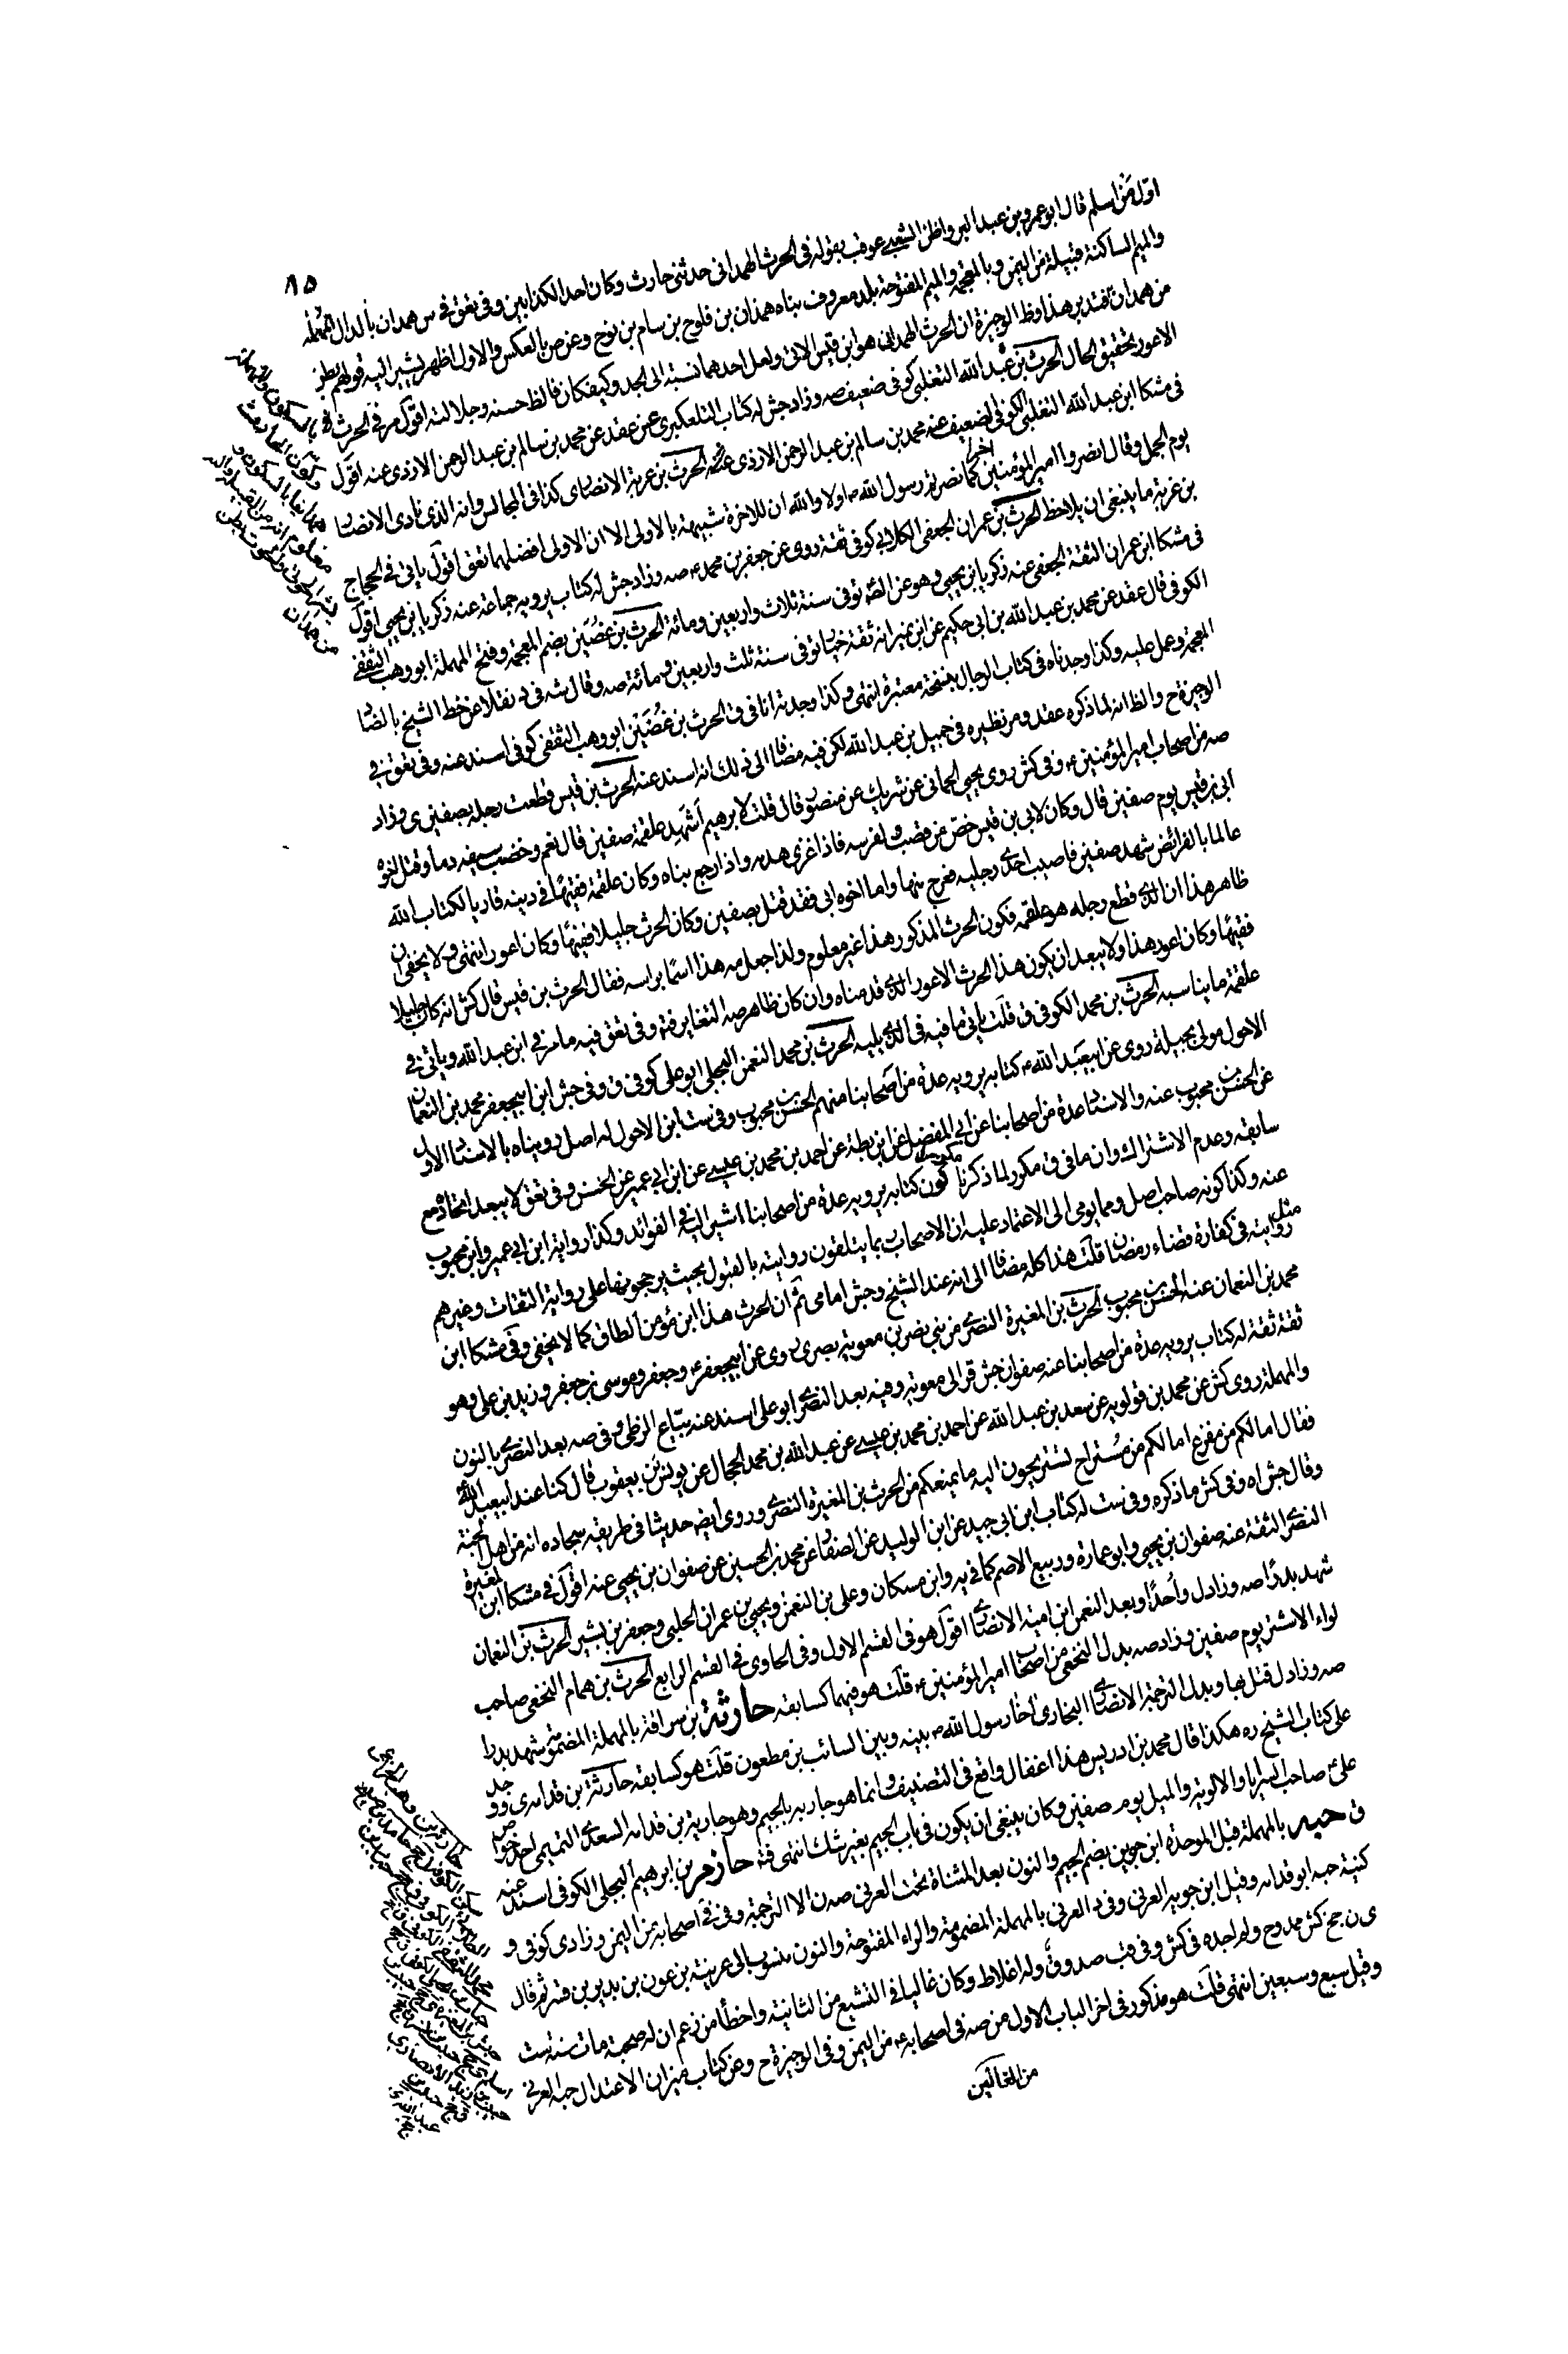 ٨٥
اوّل من اسلم قال ابو عمرو بن عبد البر واظن الشعبي عوقب بقوله في الحرث الهمداني حدثني حارث وكان احد الكذابين وفي تعق في س همدان بالدال المهملة
والميم الساكنة قبيلة من اليمن وبالمعجمة والميم المفتوحة بلد معروف بناه همذان بن فلوج بن سام بن نوح وعن ص بالعكس والاول اظهر يشير اليه قولهم بطن
من همدان فتدبر هذا وظ الوجيزة ان الحرث الهمداني هو ابن قيس الاتي ولعل احدهما نسبة الى الجد وكيفكان فالظ حسنه وجلالته اقول مر في الحرث
الاعور تحقيق الحال الحرث بن عبد الله التغلبي كوفى ضعيف صه وزاد جش له كتاب التلعكبري عن عقد عن محمد بن سالم بن عبد الرحمن الازدى عنه اقول
في مشكا ابن عبد الله التغلبي الكوفي الضعيف عنه محمد بن سالم بن عبد الرحمن الازدى الحرث بن غزية الانصارى كذا في المجالس وانه الذى نادى الانصار
يوم الجمل وقال انصروا امير المؤمنين اخرا كما نصرتم رسول الله ص اولا والله ان للاخرة شبيهة بالاولى الا ان الاولى افضلهما تعق اقول ياتى في الحجاج
بن غزية ما ينبغي ان يلاحظ الحرث بن عمران الجعفى الكلابي كوفى ثقة روى عن جعفر بن محمد ع صه وزاد جش له كتاب يرويه جماعة عنه زكريا بن يحيى اقول
في مشكا ابن عمران الثقة الجعفى عنه زكريا بن يحيى وهو عن الص توفى سنة ثلاث واربعين ومائة الحرث بن غُضَين بضم المعجمة وفتح المهملة ابو وهب الثقفي
الكوفى قال عقد عن محمد بن عبد الله بن ابى حكيم عن ابن نمير انه ثقة خيار توفى سنة ثلث واربعين ومائة صه وقال شه في د نقلا عن خط الشيخ بالضاد
المعجمة وعمل عليه وكذا وجدناه في كتاب الرجال بنسخة معتبرة انتهى وكذا وجدته انا في ق الحرث بن غُضَين ابو وهب الثقفى كوفى اسند عنه وفى تعق في
الوجيزة ح والظ انه لما ذكره عقد ومر نظيره في جميل بن عبد الله لكن فيه مضافا الى ذلك انه اسند عنه الحرث بن قيس قطعت رجله بصفين ى وزاد
صه من اصحاب امير المؤمنين ع وفى كش روى يحيى الحمانى عن شريك عن منصور قال قلت لابرهيم أشهد علقمة صفين قال نعم وخضب سيفه دما وقتل اخوه
ابى بن قيس يوم صفين قال وكان لابى بن قيس خص من قصب ولفرسه فاذا غزى هدمه واذا رجع بناه وكان علقمة فقيها في دينه قاريا لكتاب الله
عالما بالفرائض شهد صفين فاصيب احدى رجليه فعرج منها واما اخوه ابى فقد قتل بصفين وكان الحرث جليلا فقيها وكان اعور انتهى ولا يخفى ان
ظاهر هذا ان الذى قطع رجله هو علقمة فكون الحرث المذكور هذا غير معلوم ولذا جعل صه هذا اسما براسه فقال الحرث بن قيس قال كش انه كان جليلا
فقيها وكان اعور هذا ولا يبعد ان يكون هذا الحرث الاعور الذى قدمناه وان كان ظاهر صه التغاير فتم وفى تعق فيه ما مر في ابن عبد الله وياتى في
علقمة ما يناسبه الحرث بن محمد الكوفى ق قلت ياتى ما فيه في الذى يليه الحرث بن محمد النعمن البجلى ابو على كوفى ق وفى جش ابن ابيجعفر محمد بن النعمان
الاحول مولى بجيلة روى عن ابيعبد الله ع كتابه يرويه عدة من اصحابنا منهم الحسن بن محبوب وفى ست ابن الاحول له اصل رويناه بالاسناد الاول
عن الحسن بن محبوب عنه والاسناد عدة من اصحابنا عن ابى المفضل عن ابن بطة عن احمد بن محمد بن عيسى عن ابن ابى عمير عن الحسن وفى تعق لا يبعد اتحاده مع
سابقه وعدم الاشتراك وان ما في ق مكرر لما ذكرنا كون كتابه يرويه عدة من اصحابنا اشير اليه في الفوائد وكذا رواية ابن ابى عمير وابن محبوب
عنه وكذا كونه صاحب اصل ومما يومى الى الاعتماد عليه ان الاصحاب ربما يتلقون روايته بالقبول بحيث يرجحونها على رواية الثقات وغيرهم
مثل روايته في كفارة قضاء رمضان قلت هذا كله مضافا الى انه عند الشيخ وجش امامى ثم ان الحرث هذا ابن مؤمن الطاق كما لا يخفى وفى مشكا ابن
محمد بن النعمان عنه الحسن بن محبوب الحرث بن المغيرة النصرى من بنى نصر بن معوية بصرى روى عن ابيجعفر ع وجعفر وموسى بن جعفر وزيد بن على وهو
ثقة ثقة له كتاب يرويه عدة من اصحابنا عنه صفوان جش قر الى معوية وفيه بعد النصرى ابو على اسند عنه بياع الزطى وفى صه بعد النصرى بالنون
والمهملة روى كش عن محمد بن قولويه عن سعد بن عبد الله عن احمد بن محمد بن عيسى عن عبد الله بن محمد الحجال عن يونس بن يعقوب قال كنا عند ابيعبد الله ع
فقال اما لكم من مفزع اما لكم من مستراح تستريحون اليه ما يمنعكم من الحرث بن المغيرة النصرى وروى ايضه حديثا في طريقه سجاده انه من اهل الجنة
وقال جش اه وفى كش ما ذكره وفى ست له كتاب ابن ابى جيد عن ابن الوليد عن الصفار عن محمد بن الحسين عن صفوان بن يحيى عنه اقول في مشكا ابن المغيرة
النصرى الثقة عنه صفوان بن يحيى وابو عمارة وربيع الاصم كما في يه وابن مسكان وعلى بن النعمن ويحيى بن عمران الحلبى وجعفر بن بشير الحرث بن النعمان
شهد بدرًا صه وزاد ل واُحدًا وبعد النعمن ابن امية الانصارى اقول هو في القسم الاول وفى الحاوى في القسم الرابع الحرث بن همام النخعى صاحب
لواء الاشتر يوم صفين وزاد صه بدل النخعى من اصحاب امير المؤمنين ع قلت هو فيهما كسابقه حارثة بن سراقة بالمهملة المضمومة شهد بدرا
صه وزاد ل قتل بها وبدل الترجمة الانصارى البخارى اخا رسول الله ص بينه وبين السائب بن مطعون قلت هو كسابقه حارثة بن قدامه ى وو
على كتاب الشيخ ره هكذا قال محمد بن ادريس هذا اغفال واقع في التصنيف وانما هو جاريه بالجيم وهو جارية بن قدامه السعدى التميمى احد خواص
على ع صاحب السرايا والالوية والميل يوم صفين وكان ينبغى ان يكون في باب الجيم بغير شك انتهى فته حازم بن ابرهيم البجلى الكوفى اسند عنه
ق حبه بالمهملة قبل الموحدة ابن جوين بضم الجيم والنون بعد المثناة تحت العرنى صه ن الا الترجمة وفى ق اصحابه من اليمن وزاد ى كوفى و
كنية حبه ابو قدامه وقيل ابن جويه العرنى وفى د العرنى بالمهملة المضمومة والراء المفتوحة والنون منسوب الى عرينة بن عون بن بدير بن قسر ثم قال
ى ن جخ كش ممدوح ولم اجده في كش وفى قب صدوق وله اغلاط وكان غاليا في التشيع من الثانية واخطأ من زعم ان له صحبة مات سنة ست
وقيل سبع وسبعين انتهى قلت هو مذكور في اخر الباب الاول من صه في اصحابه ع من اليمن وفى الوجيزة ح وعن كتاب ميزان الاعتدال حبه العرنى
من الغالين